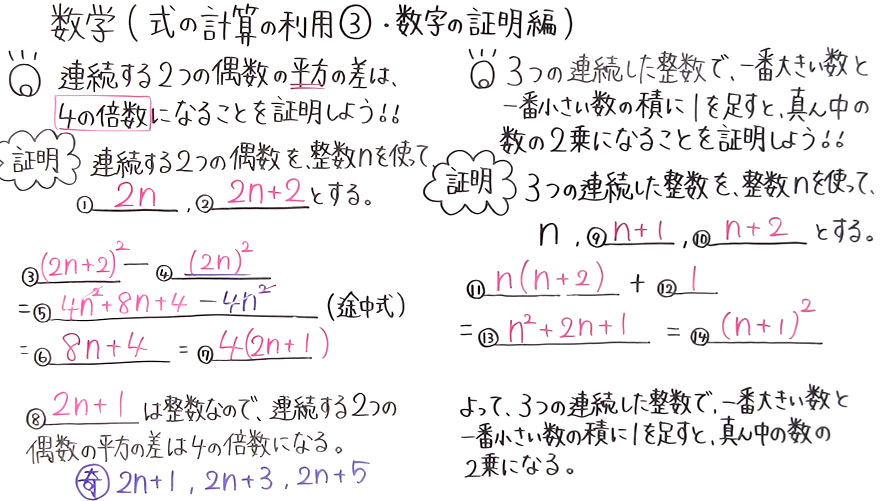 数学(式の計算の利用③・数字の証明編)
連続する2つの偶数の平方の差は、
4の倍数になることを証明しよう!!
証明 連続する2つの偶数を、整数nを使って、
① 2n , ② 2n+2 とする。
③ (2n+2)² − ④ (2n)²
= ⑤ 4n²+8n+4 −4n² (途中式)
= ⑥ 8n+4 = ⑦ 4(2n+1)
⑧ 2n+1 は整数なので、連続する2つの
偶数の平方の差は4の倍数になる。
奇 2n+1 , 2n+3 , 2n+5
3つの連続した整数で、一番大きい数と
一番小さい数の積に1を足すと、真ん中の
数の2乗になることを証明しよう!!
証明 3つの連続した整数を、整数nを使って、
n , ⑨ n+1 , ⑩ n+2 とする。
⑪ n(n+2) + ⑫ 1
= ⑬ n²+2n+1 = ⑭ (n+1)²
よって、3つの連続した整数で、一番大きい数と
一番小さい数の積に1を足すと、真ん中の数の
2乗になる。